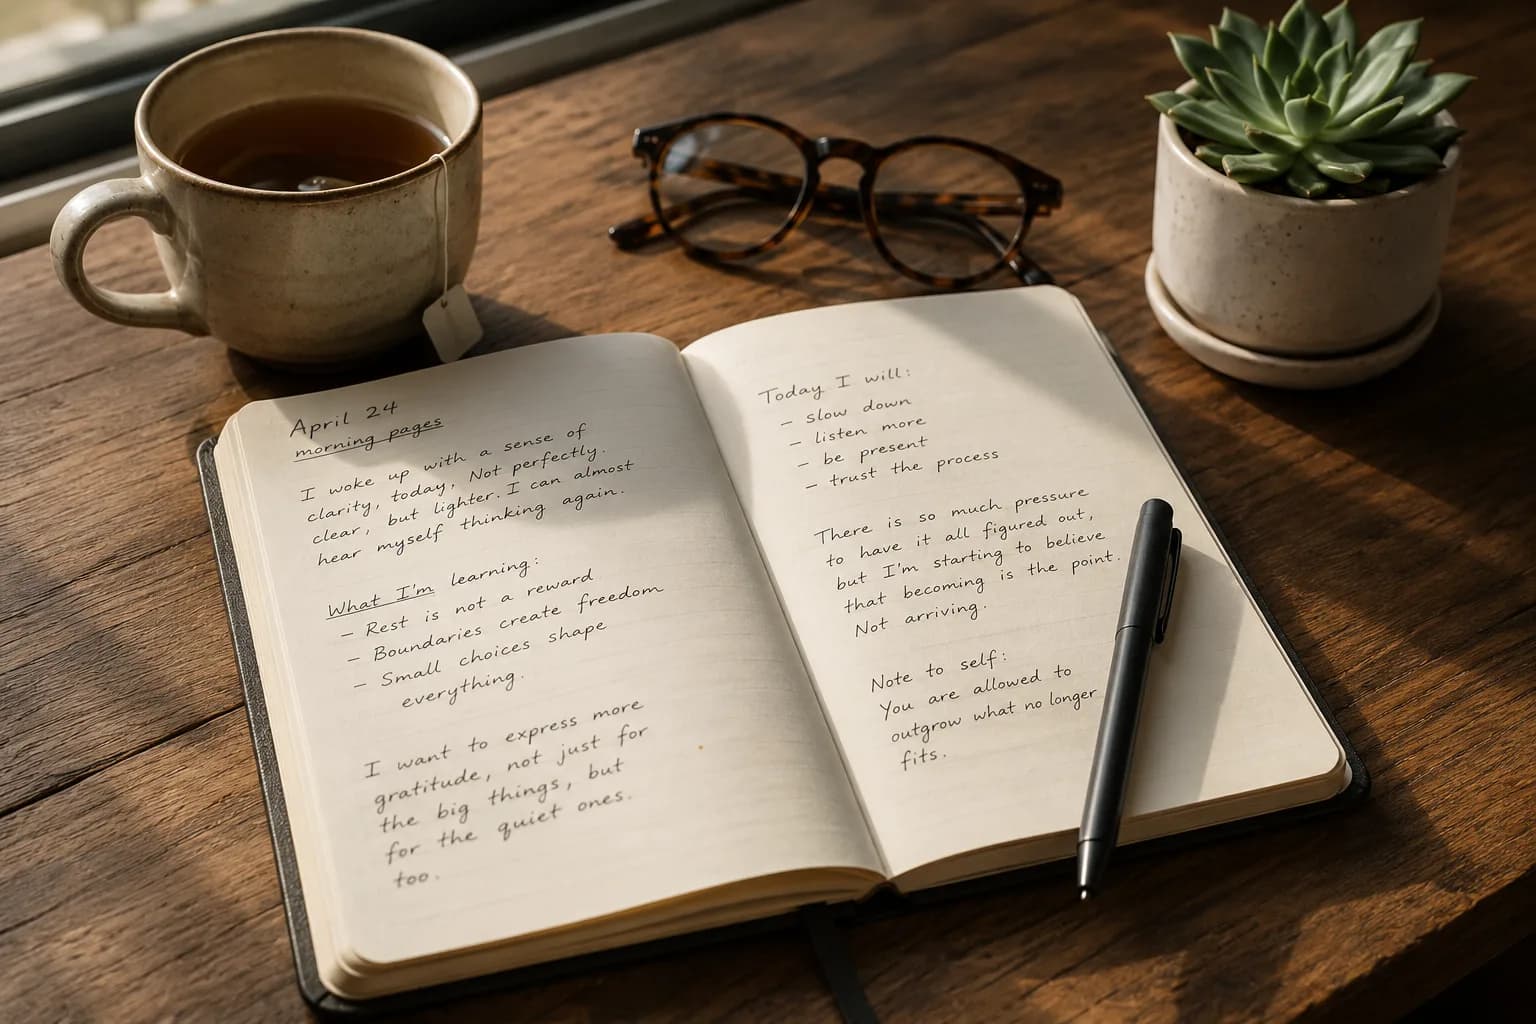 April 24
morning pages
I woke up with a sense of
clarity, today, Not perfectly.
clear, but lighter. I can almost
hear myself thinking again.
What I'm learning:
– Rest is not a reward
– Boundaries create freedom
– Small choices shape
everything.
I want to express more
gratitude, not just for
the big things, but
for the quiet ones.
too.
Today I will:
– slow down
– listen more
– be present
– trust the process
There is so much pressure
to have it all figured out,
but I'm starting to believe
that becoming is the point.
Not arriving.
Note to self:
You are allowed to
outgrow what no longer
fits.